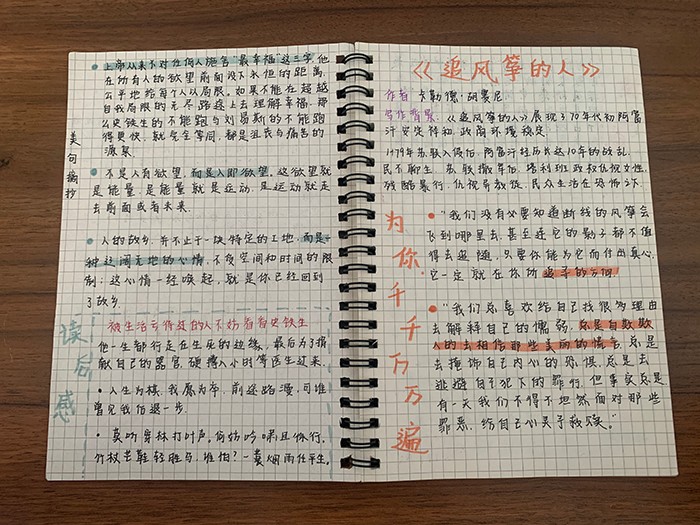 美句摘抄
上帝从来不对任何人施舍"最幸福"这三个字,他
在所有人的欲望前面设下永恒的距离,
公平地给每个人以局限。如果不能在超越
自我局限的无尽路途上去理解幸福,那
么史铁生的不能跑与刘易斯的不能跑
得更快,就完全等同,都是沮丧与痛苦的
源泉
不是人有欲望,而是人即欲望。这欲望就
是能量,是能量就是运动,是运动就走
去前面或者未来.
人的故乡,并不止于一块特定的土地,而是一
种辽阔无地的心情,不受空间和时间的限
制;这心情一经唤起,就是你已经回到
了故乡。
读后感
被生活亏待过的人不妨看看史铁生
他一生都行走在生死的边缘,最后为了捐
献自己的器官,硬撑八小时等医生过来.
人生为棋,我愿为卒,前途路漫,可谁
曾见我后退一步.
莫听穿林打叶声,何妨吟啸且徐行。
竹杖芒鞋轻胜马,谁怕?一蓑烟雨任平生。
《追风筝的人》
作者:卡勒德·胡赛尼
写作背景:《追风筝的人》展现了70年代初阿富
汗安定祥和,政局环境稳定.
1979年苏联入侵后,阿富汗经历长达10年的战乱,
民不聊生,苏联撤军后,塔利班政权仇视女性,
残酷暴行,仇视异教徒,民众生活在恐怖之下.
为你千千万万遍
"我们没有必要知道断线的风筝会
飞到哪里去,甚至连它的影子都不值
得去追随,只要你能为它而付出真心,
它一定就在你所追寻的方向
"我们总喜欢给自己找很多理由
去解释自己的懦弱,总是自欺欺
人的去相信那些美丽的谎言,总是
去掩饰自己内心的恐惧,总是去
逃避自己犯下的罪行,但事实总是
有一天我们不得不坦然面对那些
罪恶,给自己心灵予救赎。"